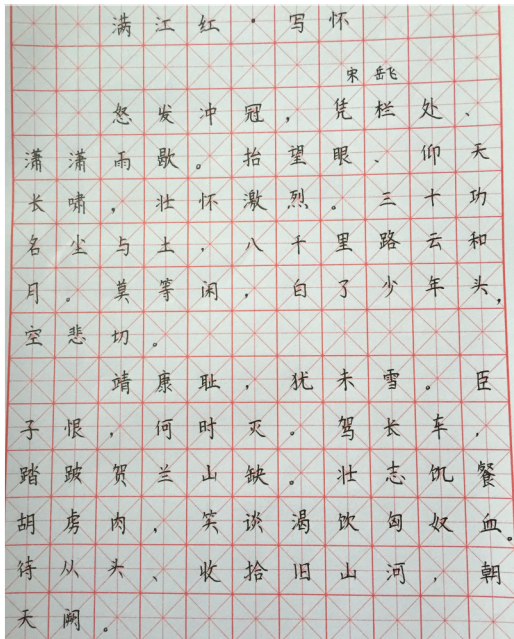 满江红·写怀
宋 岳飞
怒发冲冠，凭栏处、
潇潇雨歇。抬望眼、仰天
长啸，壮怀激烈。三十功
名尘与土，八千里路云和
月。莫等闲，白了少年头，
空悲切。
靖康耻，犹未雪。臣
子恨，何时灭。驾长车，
踏破贺兰山缺。壮志饥餐
胡虏肉，笑谈渴饮匈奴血。
待从头、收拾旧山河，朝
天阙。